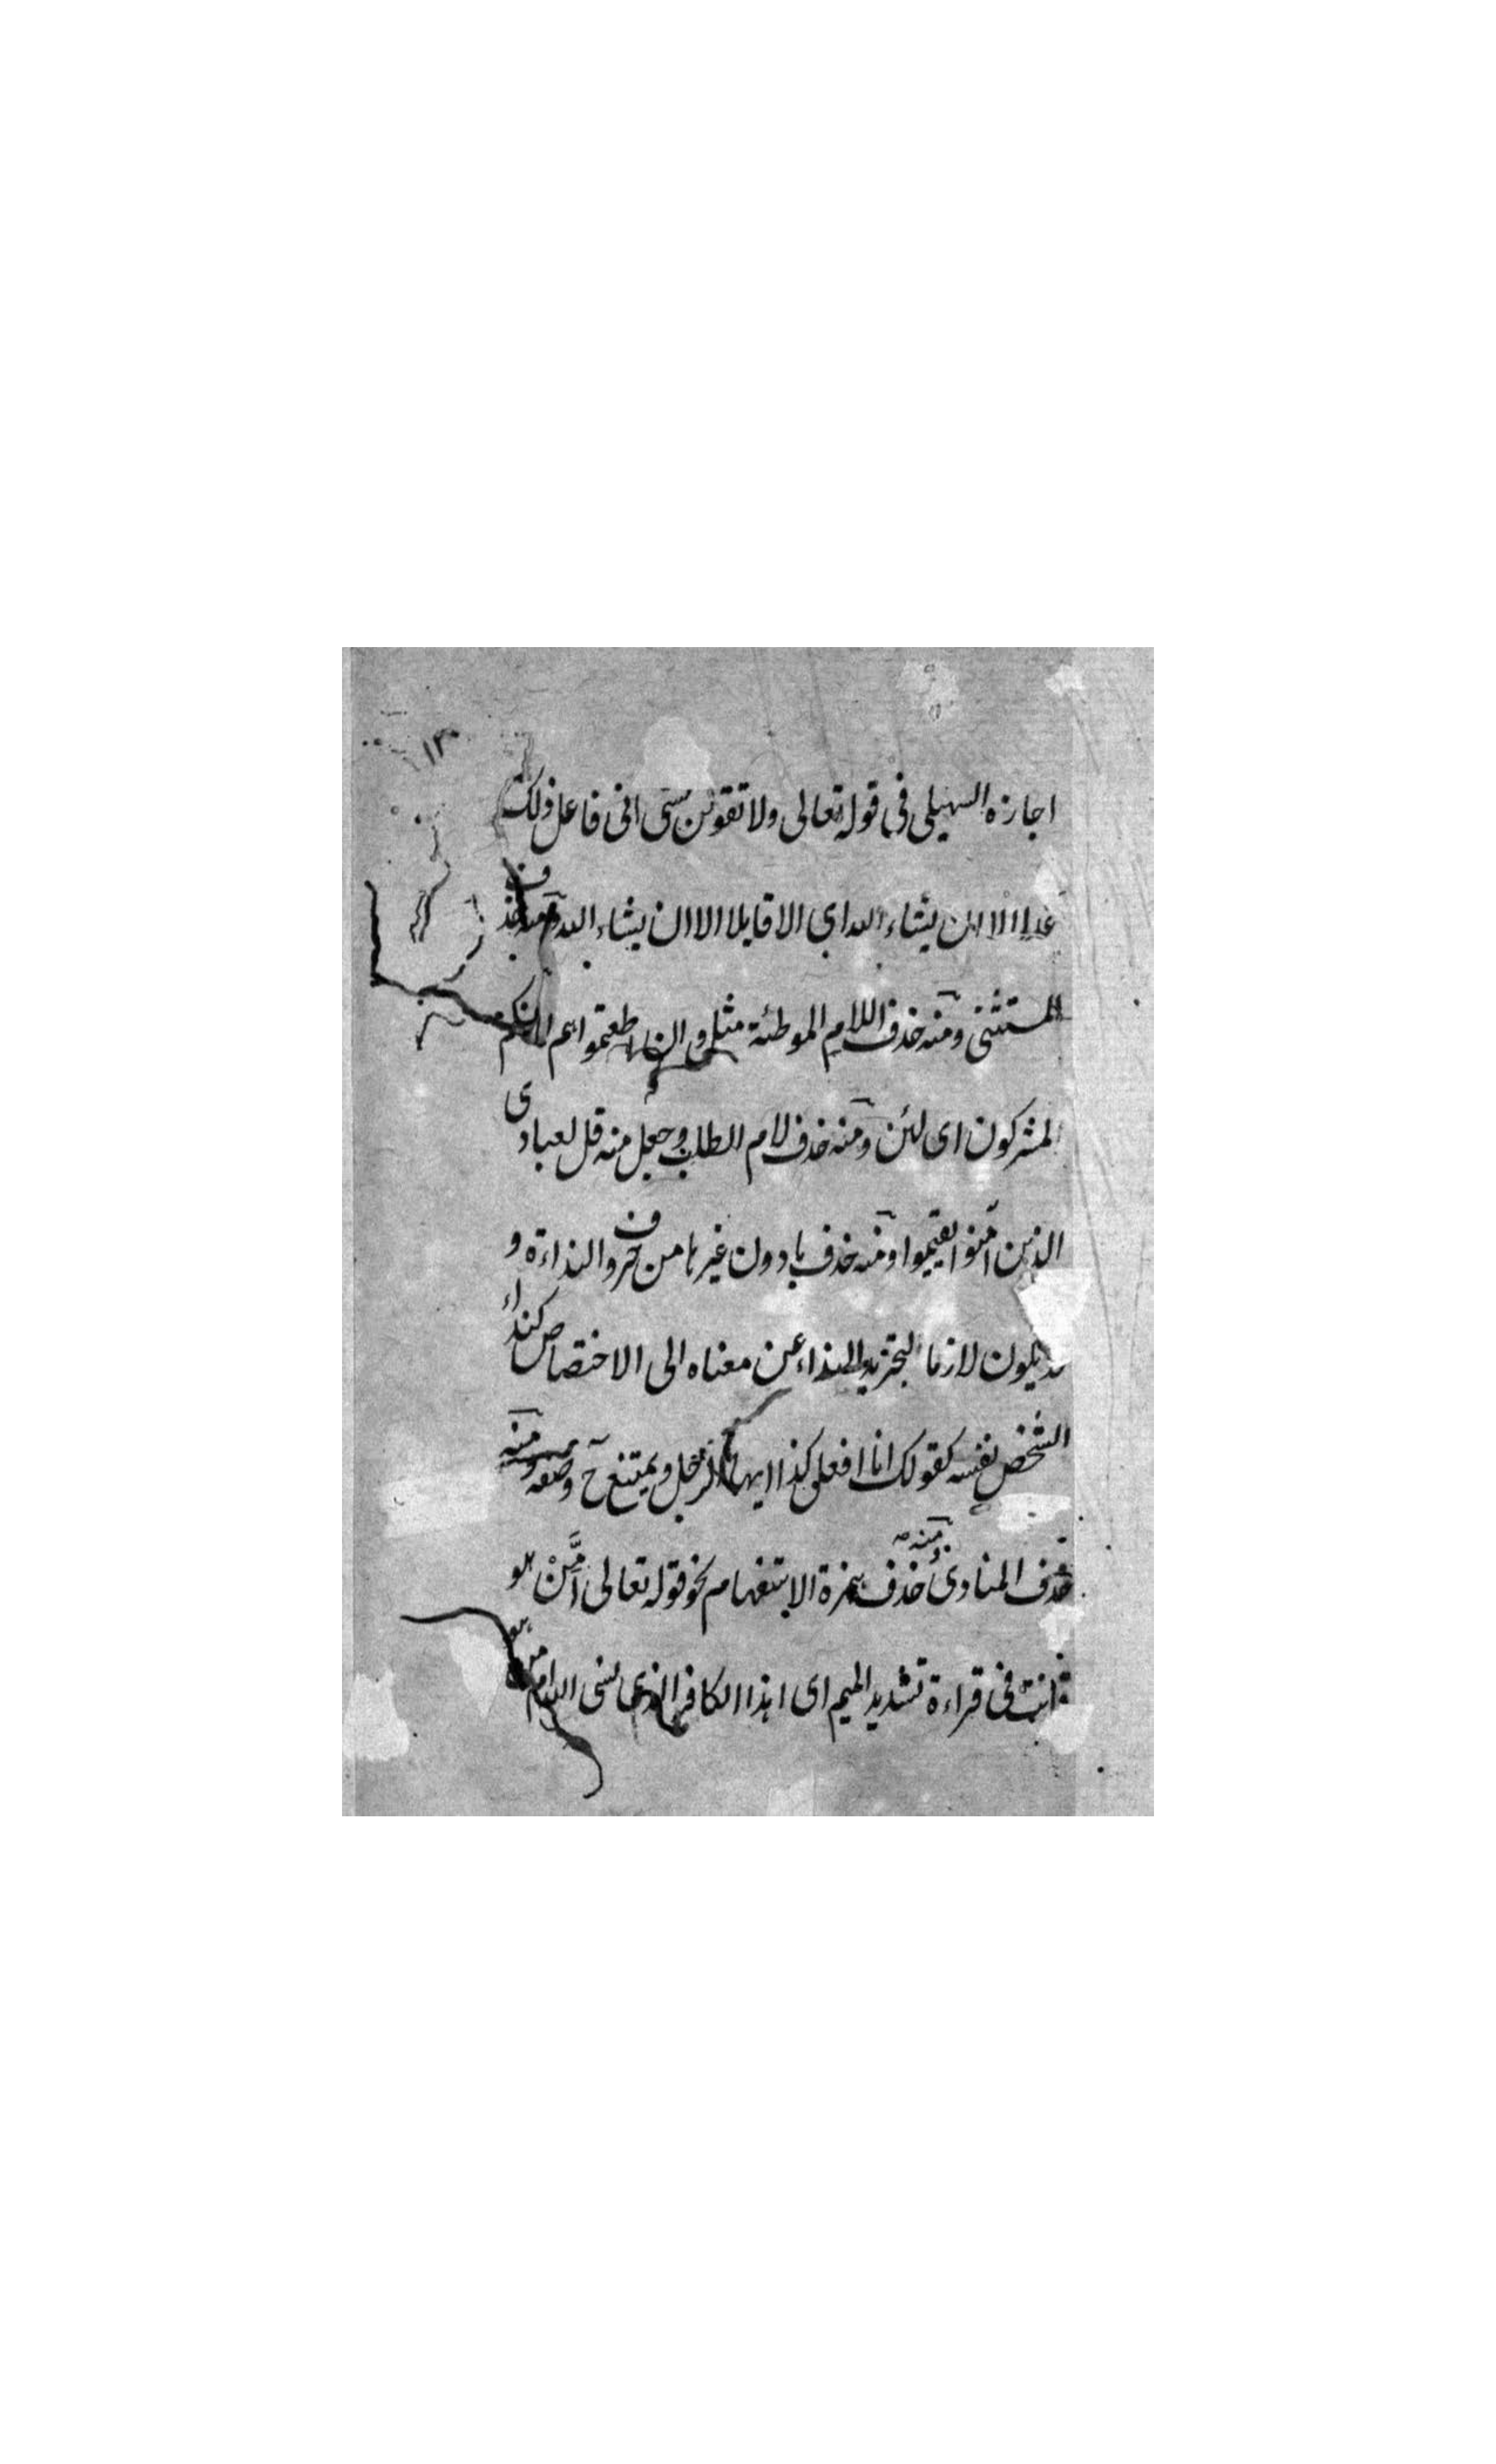 ١٣
اجازه السهيلى فى قوله تعالى ولا تقولن لشى انى فاعل ذلك
غدا الا ان يشاء الله اى الا قايلا الا ان يشاء الله ومنه حذف
المستثنى ومنه حذف اللام الموطئة مثل وان اطعتموهم انكم
لمشركون اى لئن ومنه حذف لام الطلب وجعل منه قل لعبادى
الذين آمنوا يقيموا ومنه حذف يا دون غيرها من حروف النداءة و
قد يكون لازما لتجريد النداء عن معناه الى الاختصاص كنداء
الشخص نفسه كقولك انا افعل كذا ايها الرجل ويمتنع ح وصفه ومنه
حذف المنادى ومنه حذف همزة الاستفهام نحو قوله تعالى أمَّنْ هو
قانت فى قراءة تشديد الميم اى اهذا الكافر الذى نسى الله ام من هو